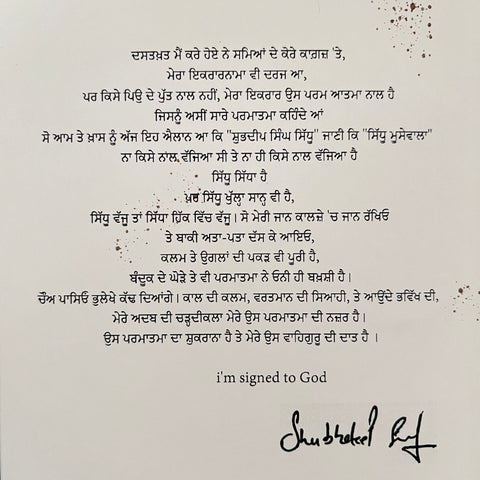 ਦਸਤਖ਼ਤ ਮੈਂ ਕਰੇ ਹੋਏ ਨੇ ਸਮਿਆਂ ਦੇ ਕੋਰੇ ਕਾਗ਼ਜ਼ 'ਤੇ,
ਮੇਰਾ ਇਕਰਾਰਨਾਮਾ ਵੀ ਦਰਜ ਆ,
ਪਰ ਕਿਸੇ ਪਿਓ ਦੇ ਪੁੱਤ ਨਾਲ ਨਹੀਂ, ਮੇਰਾ ਇਕਰਾਰ ਉਸ ਪਰਮ ਆਤਮਾ ਨਾਲ ਹੈ
ਜਿਸਨੂੰ ਅਸੀਂ ਸਾਰੇ ਪਰਮਾਤਮਾ ਕਹਿੰਦੇ ਆਂ
ਸੋ ਆਮ ਤੇ ਖ਼ਾਸ ਨੂੰ ਅੱਜ ਇਹ ਐਲਾਨ ਆ ਕਿ "ਸ਼ੁਭਦੀਪ ਸਿੰਘ ਸਿੱਧੂ" ਜਾਣੀ ਕਿ "ਸਿੱਧੂ ਮੂਸੇਵਾਲਾ"
ਨਾ ਕਿਸੇ ਨਾਲ ਵੱਜਿਆ ਸੀ ਤੇ ਨਾ ਹੀ ਕਿਸੇ ਨਾਲ ਵੱਜਿਆ ਹੈ
ਸਿੱਧੂ ਸਿੱਧਾ ਹੈ
ਖ਼ਰ ਸਿੱਧੂ ਖੁੱਲ੍ਹਾ ਸਾਨ੍ਹ ਵੀ ਹੈ,
ਸਿੱਧੂ ਵੱਜੂ ਤਾਂ ਸਿੱਧਾ ਹਿੱਕ ਵਿੱਚ ਵੱਜੂ। ਸੋ ਮੇਰੀ ਜਾਨ ਕਾਲਜ਼ੇ 'ਚ ਜਾਨ ਰੱਖਿਓ
ਤੇ ਬਾਕੀ ਅਤਾ-ਪਤਾ ਦੱਸ ਕੇ ਆਇਓ,
ਕਲਮ ਤੇ ਉਗਲਾਂ ਦੀ ਪਕੜ ਵੀ ਪੂਰੀ ਹੈ,
ਬੰਦੂਕ ਦੇ ਘੋੜੇ ਤੇ ਵੀ ਪਰਮਾਤਮਾ ਨੇ ਓਨੀ ਹੀ ਬਖ਼ਸ਼ੀ ਹੈ।
ਚੌਅ ਪਾਸਿਓ ਭੁਲੇਖੇ ਕੱਢ ਦਿਆਂਗੇ। ਕਾਲ ਦੀ ਕਲਮ, ਵਰਤਮਾਨ ਦੀ ਸਿਆਹੀ, ਤੇ ਆਉਂਦੇ ਭਵਿੱਖ ਦੀ,
ਮੇਰੇ ਅਦਬ ਦੀ ਚੜ੍ਹਦੀਕਲਾ ਮੇਰੇ ਉਸ ਪਰਮਾਤਮਾ ਦੀ ਨਜ਼ਰ ਹੈ।
ਉਸ ਪਰਮਾਤਮਾ ਦਾ ਸ਼ੁਕਰਾਨਾ ਹੈ ਤੇ ਮੇਰੇ ਉਸ ਵਾਹਿਗੁਰੂ ਦੀ ਦਾਤ ਹੈ ।
i'm signed to God